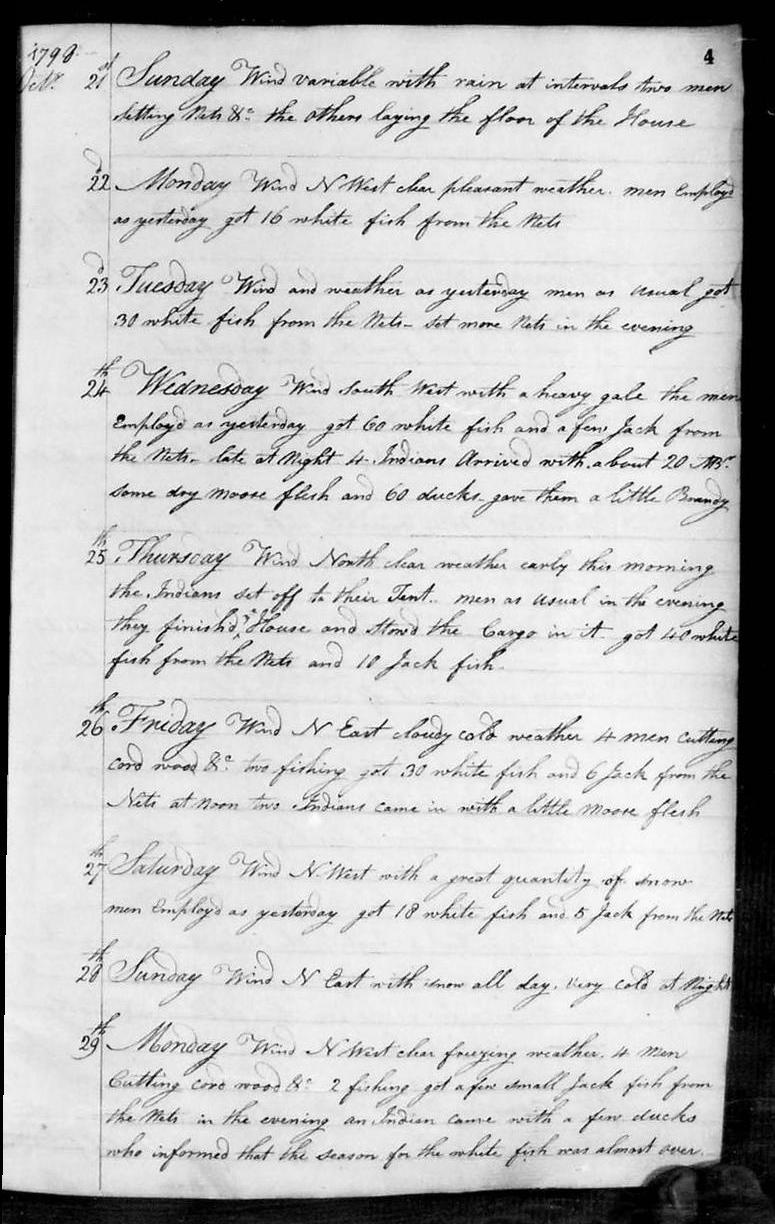 4
1798
Octr. 21st Sunday Wind variable with rain at intervals two men
setting Nets &c the others laying the floor of the House
22d Monday Wind N West clear pleasant weather. men Employd
as yesterday got 16 white fish from the Nets
23d Tuesday Wind and weather as yesterday men as usual got
30 white fish from the Nets - set more Nets in the evening
24th Wednesday Wind South West with a heavy gale the men
Employd as yesterday got 60 white fish and a few Jack from
the Nets - late at Night 4 Indians Arrived with about 20 MBr
some dry moose flesh and 60 ducks - gave them a little Brandy
25th Thursday Wind North clear weather early this morning
the Indians set off to their Tent - men as usual in the evening
they finishd ye House and stowd the Cargo in it got 40 white
fish from the Nets and 10 Jack fish -
26th Friday Wind N East cloudy cold weather 4 men cutting
cord wood &c two fishing got 30 white fish and 6 Jack from the
Nets at noon two Indians came in with a little moose flesh
27th Saturday Wind N West with a great quantity of snow
men Employd as yesterday got 18 white fish and 5 Jack from the Nets
28th Sunday Wind N East with snow all day. very cold at Night
29th Monday Wind N West clear freezing weather. 4 men
Cutting cord wood &c 2 fishing got a few small Jack fish from
the Nets in the evening an Indian came with a few ducks
who informed that the season for the white fish was almost over.